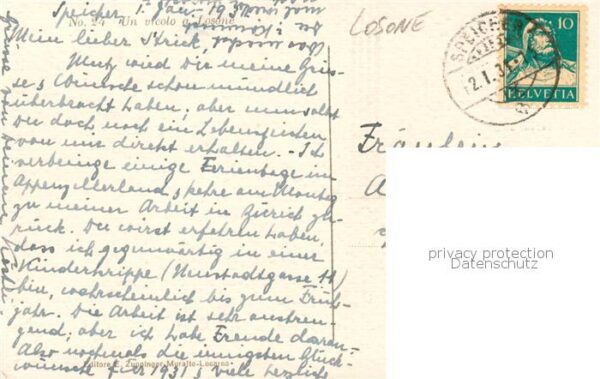 Speicher 1. Jan. 1931
No. 24 Un vicolo a Losone
Mein lieber Strick,
Mutz wird Dir meine Grüs-
se & Wünsche schon mündlich
überbracht haben, aber nun sollst
Du doch noch ein Lebenszeichen
von mir direkt erhalten. - Ich
verbringe einige Ferientage im
Appenzellerland & kehre am Montag
zu meiner Arbeit in Zürich zu-
rück. Du wirst erfahren haben,
dass ich gegenwärtig in einer
Kinderkrippe (Neustadtgasse 11)
bin, wahrscheinlich bis zum Früh-
jahr. Die Arbeit ist sehr anstren-
gend, aber ich habe Freude daran.
Also nochmals die innigsten Glück-
wünsche für 1931 & viele herzliche
Grüsse von Deinem
Editore E. Zuppinger Muralto-Locarno
LOSONE
SPEICHER
2.1.31
10
HELVETIA
Fräulein
A
privacy protection
Datenschutz